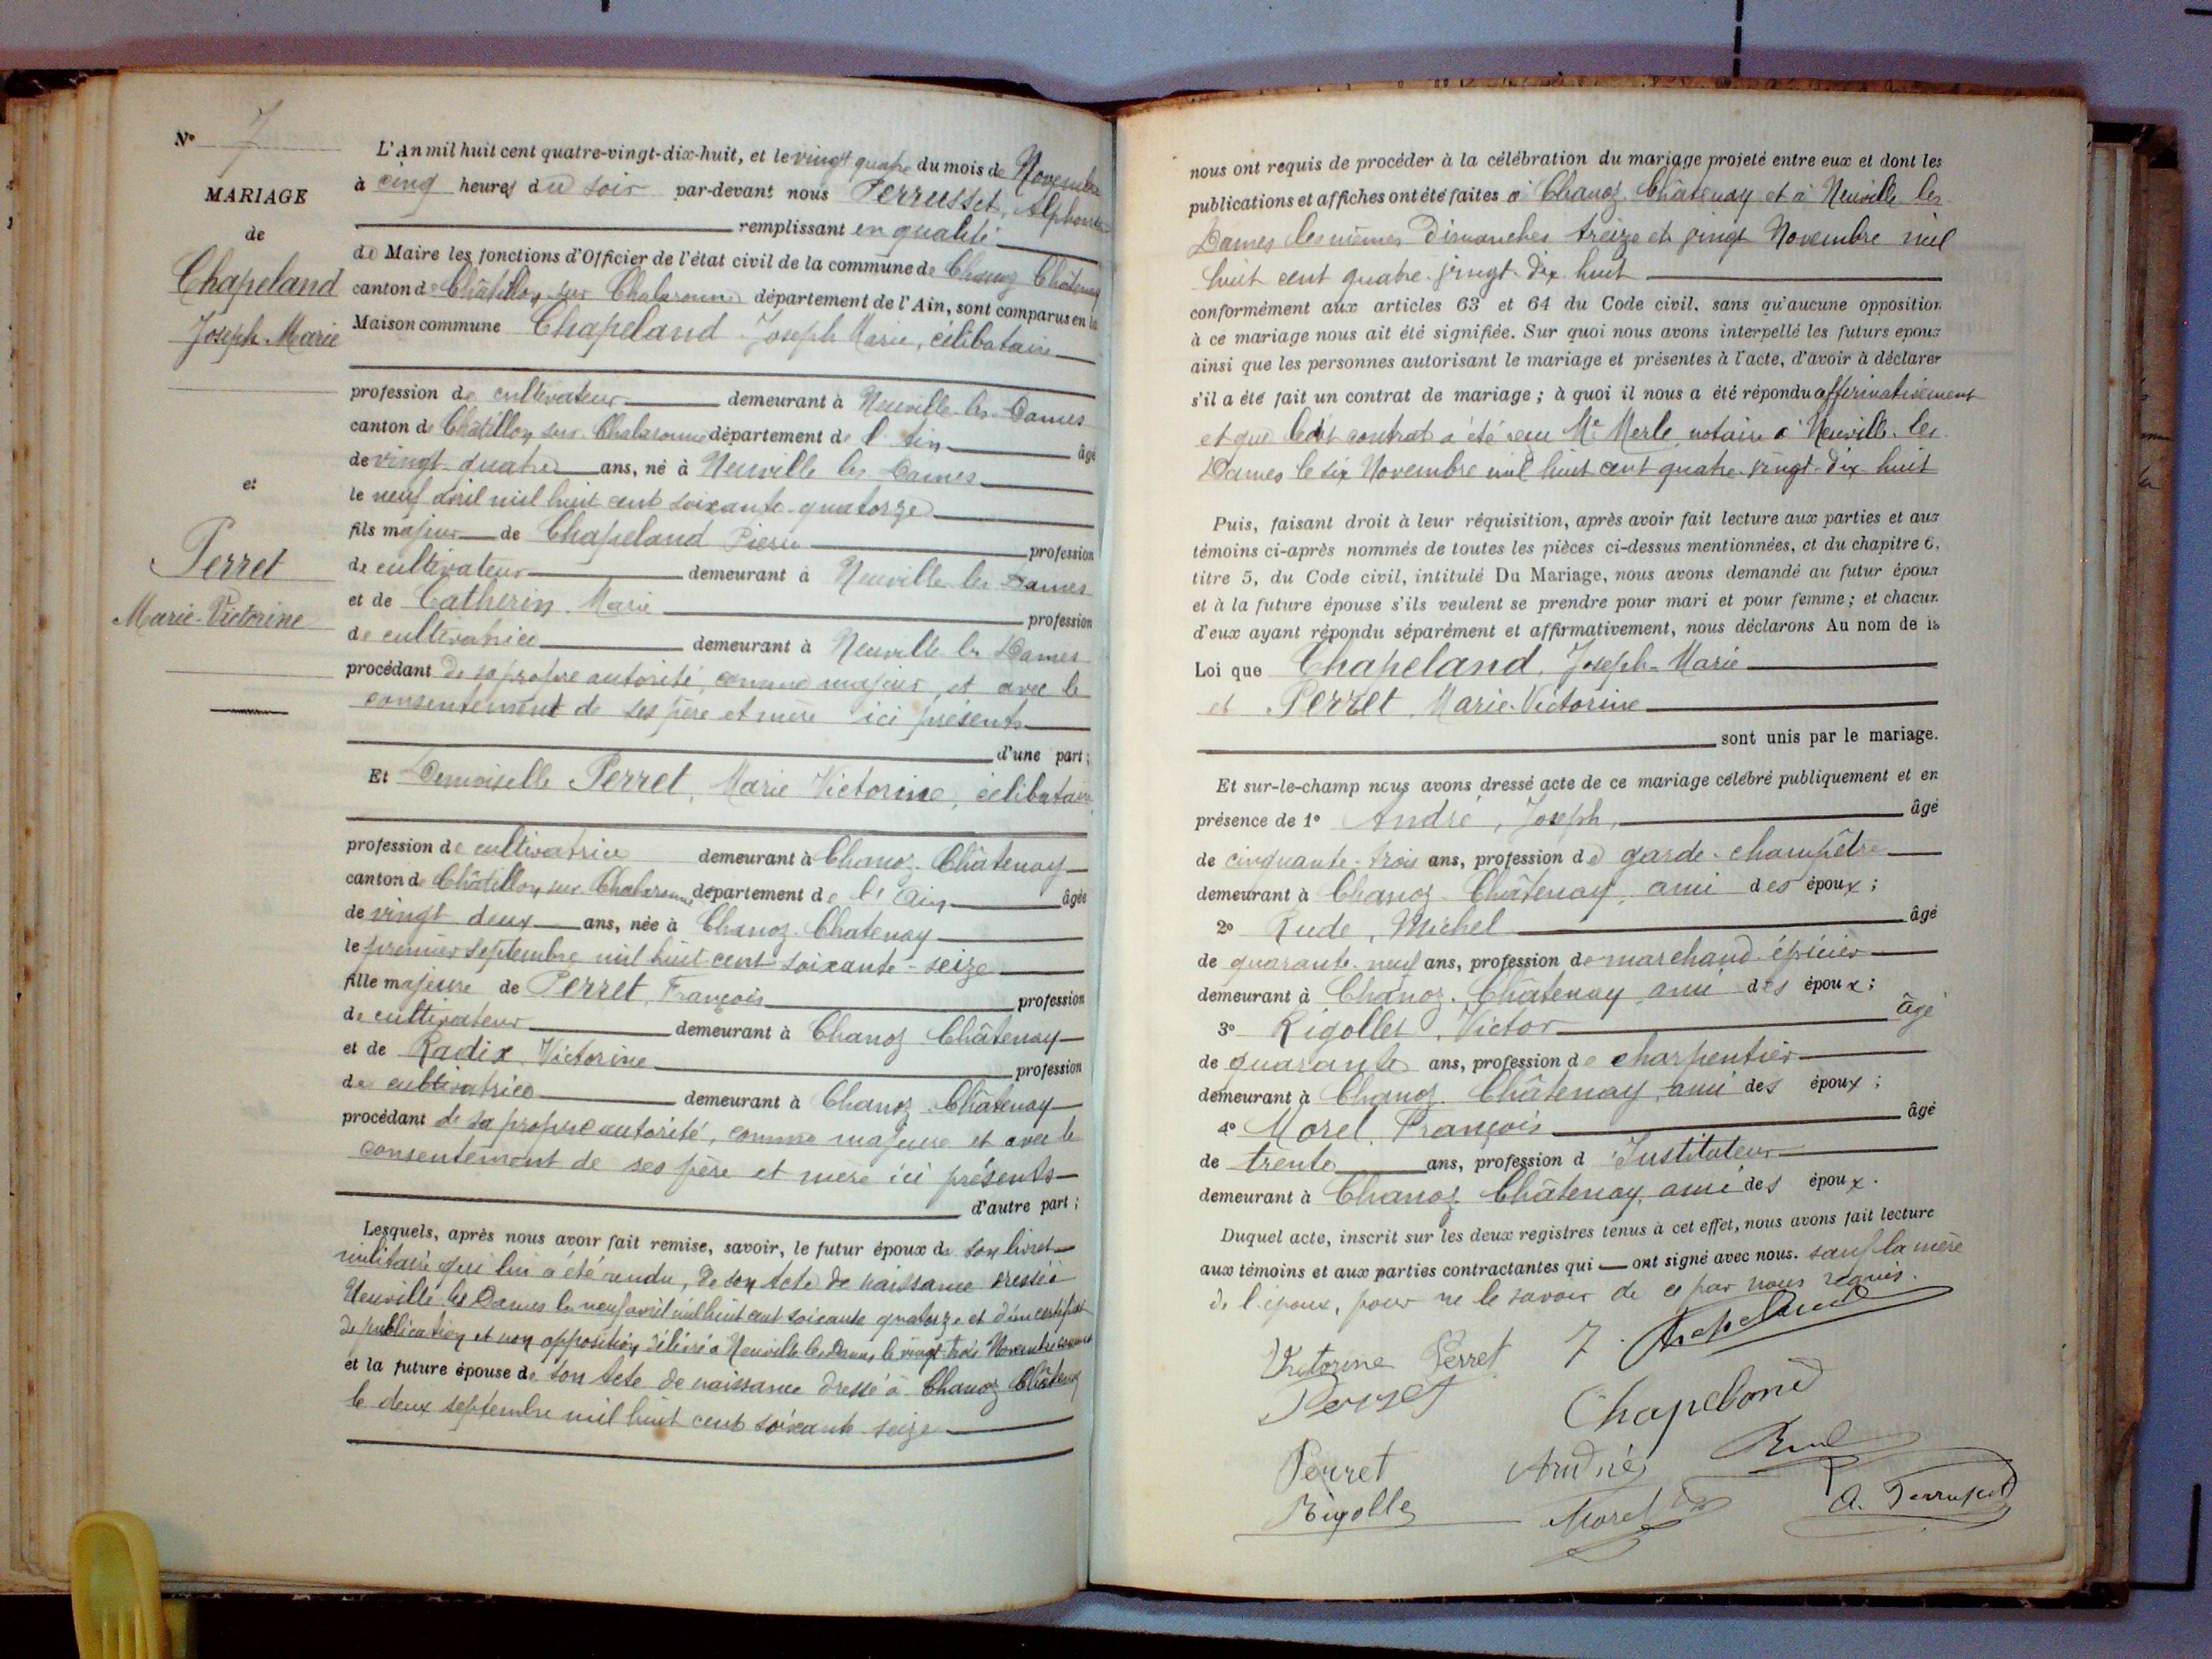 N° 7
MARIAGE
de
Chapeland
Joseph Marie
et
Perret
Marie-Victorine
L'An mil huit cent quatre-vingt-dix-huit, et le vingt quatre du mois de Novembre
à cinq heures du soir par-devant nous Perrusset, Alphonse
remplissant en qualité
de Maire les fonctions d'Officier de l'état civil de la commune de Chanoz Châtenay
canton de Châtillon sur Chalaronne département de l'Ain, sont comparus en la
Maison commune Chapeland Joseph Marie, célibataire
profession de cultivateur demeurant à Neuville-les-Dames
canton de Châtillon sur Chalaronne département de l'Ain âgé
de vingt-quatre ans, né à Neuville les Dames
le neuf avril mil huit cent soixante-quatorze
fils majeur de Chapeland Pierre profession
de cultivateur demeurant à Neuville les Dames
et de Catherin Marie profession
de cultivatrice demeurant à Neuville les Dames
procédant de sa propre autorité, comme majeur, et avec le
consentement de ses père et mère ici présents
d'une part;
Et Demoiselle Perret, Marie Victorine, célibataire
profession de cultivatrice demeurant à Chanoz-Châtenay
canton de Châtillon sur Chalaronne département de l'Ain âgée
de vingt deux ans, née à Chanoz-Chatenay
le premier septembre mil huit cent soixante-seize
fille majeure de Perret, François profession
de cultivateur demeurant à Chanoz Châtenay
et de Radix Victorine profession
de cultivatrice demeurant à Chanoz Châtenay
procédant de sa propre autorité, comme majeure et avec le
consentement de ses père et mère ici présents
d'autre part;
Lesquels, après nous avoir fait remise, savoir, le futur époux de son livret
militaire qui lui a été rendu, de son acte de naissance dressé à
Neuville les Dames le neuf avril mil huit cent soixante quatorze et d'un certificat
de publication et non opposition délivré à Neuville les Dames le vingt-trois Novembre courant
et la future épouse de son acte de naissance dressé à Chanoz Châtenay
le deux septembre mil huit cent soixante seize
nous ont requis de procéder à la célébration du mariage projeté entre eux et dont les
publications et affiches ont été faites à Chanoz Châtenay et à Neuville les
Dames les mêmes Dimanches treize et vingt Novembre mil
huit cent quatre-vingt-dix huit
conformément aux articles 63 et 64 du Code civil, sans qu'aucune opposition
à ce mariage nous ait été signifiée. Sur quoi nous avons interpellé les futurs époux
ainsi que les personnes autorisant le mariage et présentes à l'acte, d'avoir à déclarer
s'il a été fait un contrat de mariage; à quoi il nous a été répondu affirmativement
et que ledit contrat a été reçu Me Merle, notaire à Neuville-les-
Dames le six Novembre mil huit cent quatre-vingt-dix huit
Puis, faisant droit à leur réquisition, après avoir fait lecture aux parties et aux
témoins ci-après nommés de toutes les pièces ci-dessus mentionnées, et du chapitre 6,
titre 5, du Code civil, intitulé Du Mariage, nous avons demandé au futur époux
et à la future épouse s'ils veulent se prendre pour mari et pour femme; et chacun
d'eux ayant répondu séparément et affirmativement, nous déclarons Au nom de la
Loi que Chapeland, Joseph-Marie
et Perret, Marie-Victorine
sont unis par le mariage.
Et sur-le-champ nous avons dressé acte de ce mariage célébré publiquement et en
présence de 1° André, Joseph, âgé
de cinquante-trois ans, profession de garde-champêtre
demeurant à Chanoz-Châtenay, ami des époux;
2° Rude, Michel âgé
de quarante-neuf ans, profession de marchand-épicier
demeurant à Chanoz-Châtenay ami des époux;
3° Rigollet, Victor âgé
de quarante ans, profession de charpentier
demeurant à Chanoz-Châtenay, ami des époux;
4° Morel, François âgé
de trente ans, profession d'Instituteur
demeurant à Chanoz Châtenay, ami des époux.
Duquel acte, inscrit sur les deux registres tenus à cet effet, nous avons fait lecture
aux témoins et aux parties contractantes qui ont signé avec nous. sauf la mère
de l'époux, pour ne le savoir de ce par nous requis.
Victorine Perret J. Chapeland
Perret Chapeland
Perret André Rude
Rigollet Morel A. Perrusset